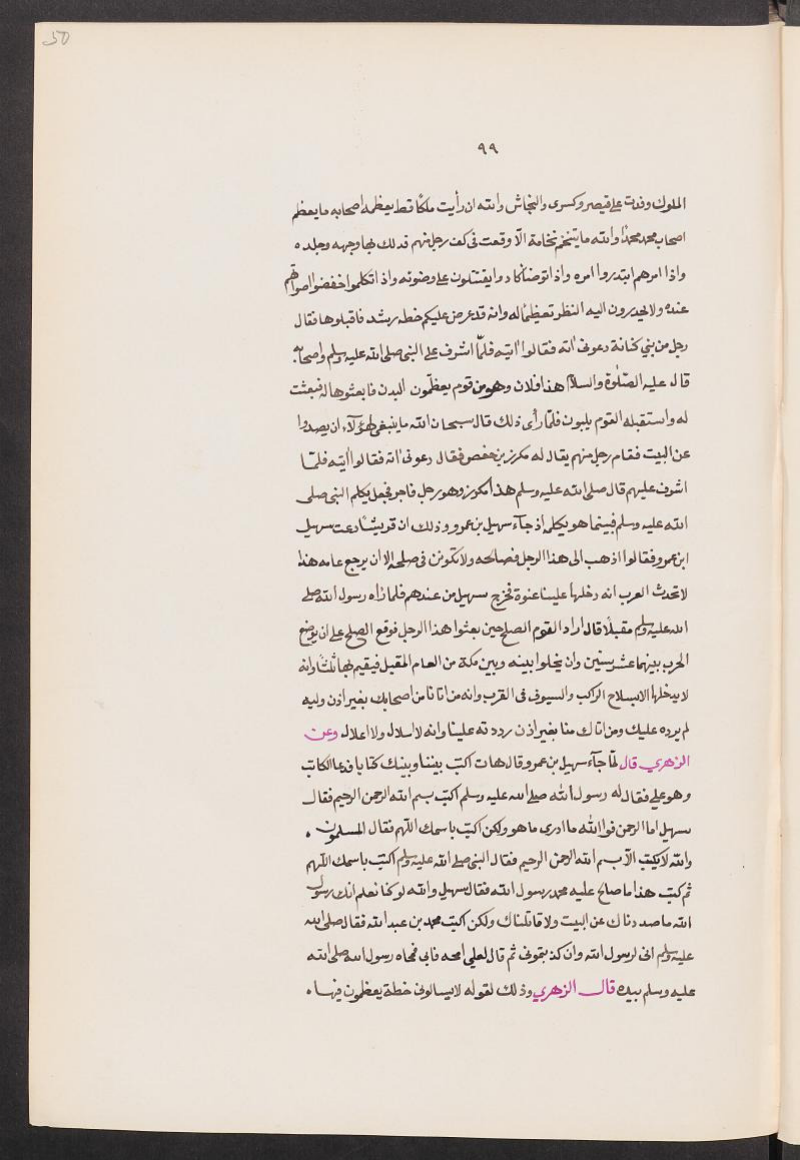 50
٩٩
الملوك وفدت على قيصر وكسرى والنجاش والله ان رأيت ملكًا قط يعظمه اصحابه ما يعظم
اصحاب محمد محمدًا والله ما يتنخم نخامة الّا وقعت فى كف رجل منهم فدلك بها وجهه وجلده
واذا امرهم ابتدروا امره واذا توضأ كادوا يقتتلون على وضوئه واذا تكلموا خفضوا اصواتهم
عنده ولا يحدرون اليه النظر تعظيمًا له وانه قد عرض عليكم خطه رشد فاقبلوها فقال
رجل من بني كنانة دعونى اته فقالوا ائته فلمّا اشرف على النبى صلى الله عليه وسلم واصحابه
قال عليه الصّلوٰة والسلام هذا فلان وهو من قوم يعظّمون البدن فابعثوها له فبعثت
له واستقبله القوم يلبون فلمّا رأى ذلك قال سبحان الله ما ينبغى لهؤلآء ان يصدوا
عن البيت فقام رجل منهم يقال له مكرز بن حفص فقال دعونى اته فقالوا ائته فلمّا
اشرف عليهم قال صلى الله عليه وسلم هذا مكرز وهو رجل فاجر فجعل يكلم النبى صلى
الله عليه وسلم فبينما هو يكلمه اذ جآء سهيل بن عمرو وذلك ان قريشًا دعت سهيل
ابن عمرو فقالوا اذهب الى هذا الرجل فصالحه ولا تكونن فى صلحه الا ان يرجع عامه هذا
لا تحدث العرب انه دخلها علينا عنوة فخرج سهيل من عندهم فلما رٔاه رسول الله صلى
الله عليه وسلم مقبلًا قال اراد القوم الصلح حين بعثوا هذا الرجل فوقع الصلح على ان يوضع
الحرب بينهما عشر سنين وان يخلوا بينه وبين مكة من العام المقبل فيقيم بها ثلثًا وانه
لا يدخلها الا بسلاح الراكب والسيوف فى القرب وانه من اتانا من اصحابك بغير اذن وليه
لم يرده عليك ومن اتاك منا بغير اذن رددته علينا وانه لا اسلال ولا اغلال وعن
الزهري قال لمّا جآء سهيل بن عمرو قال هات اكتب بيننا وبينك كتابا فدعا الكاتب
وهو على فقال له رسول الله صلى الله عليه وسلم اكتب بسم الله الرحمن الرحيم فقال
سهيل اما الرحمن فوا الله ما ادرى ما هو ولكن اكتب باسمك اللهم فقال المسلمون
والله لا نكتب الّا بسم الله الرحمن الرحيم فقال النبى صلى الله عليه وسلم اكتب باسمك اللهم
ثم كتب هذا ما صالح عليه محمد رسول الله فقال سهيل والله لو كنا نعلم انك رسول
الله ما صددناك عن البيت ولا قاتلناك ولكن اكتب محمد بن عبد الله فقال صلى الله
عليه وسلم انى لرسول الله وان كذبتمونى ثم قال لعلى امحه فابى فمحاه رسول الله صلى الله
عليه وسلم بيده قال الزهري وذلك لقوله لا يسالونى خطة يعظمون فيها